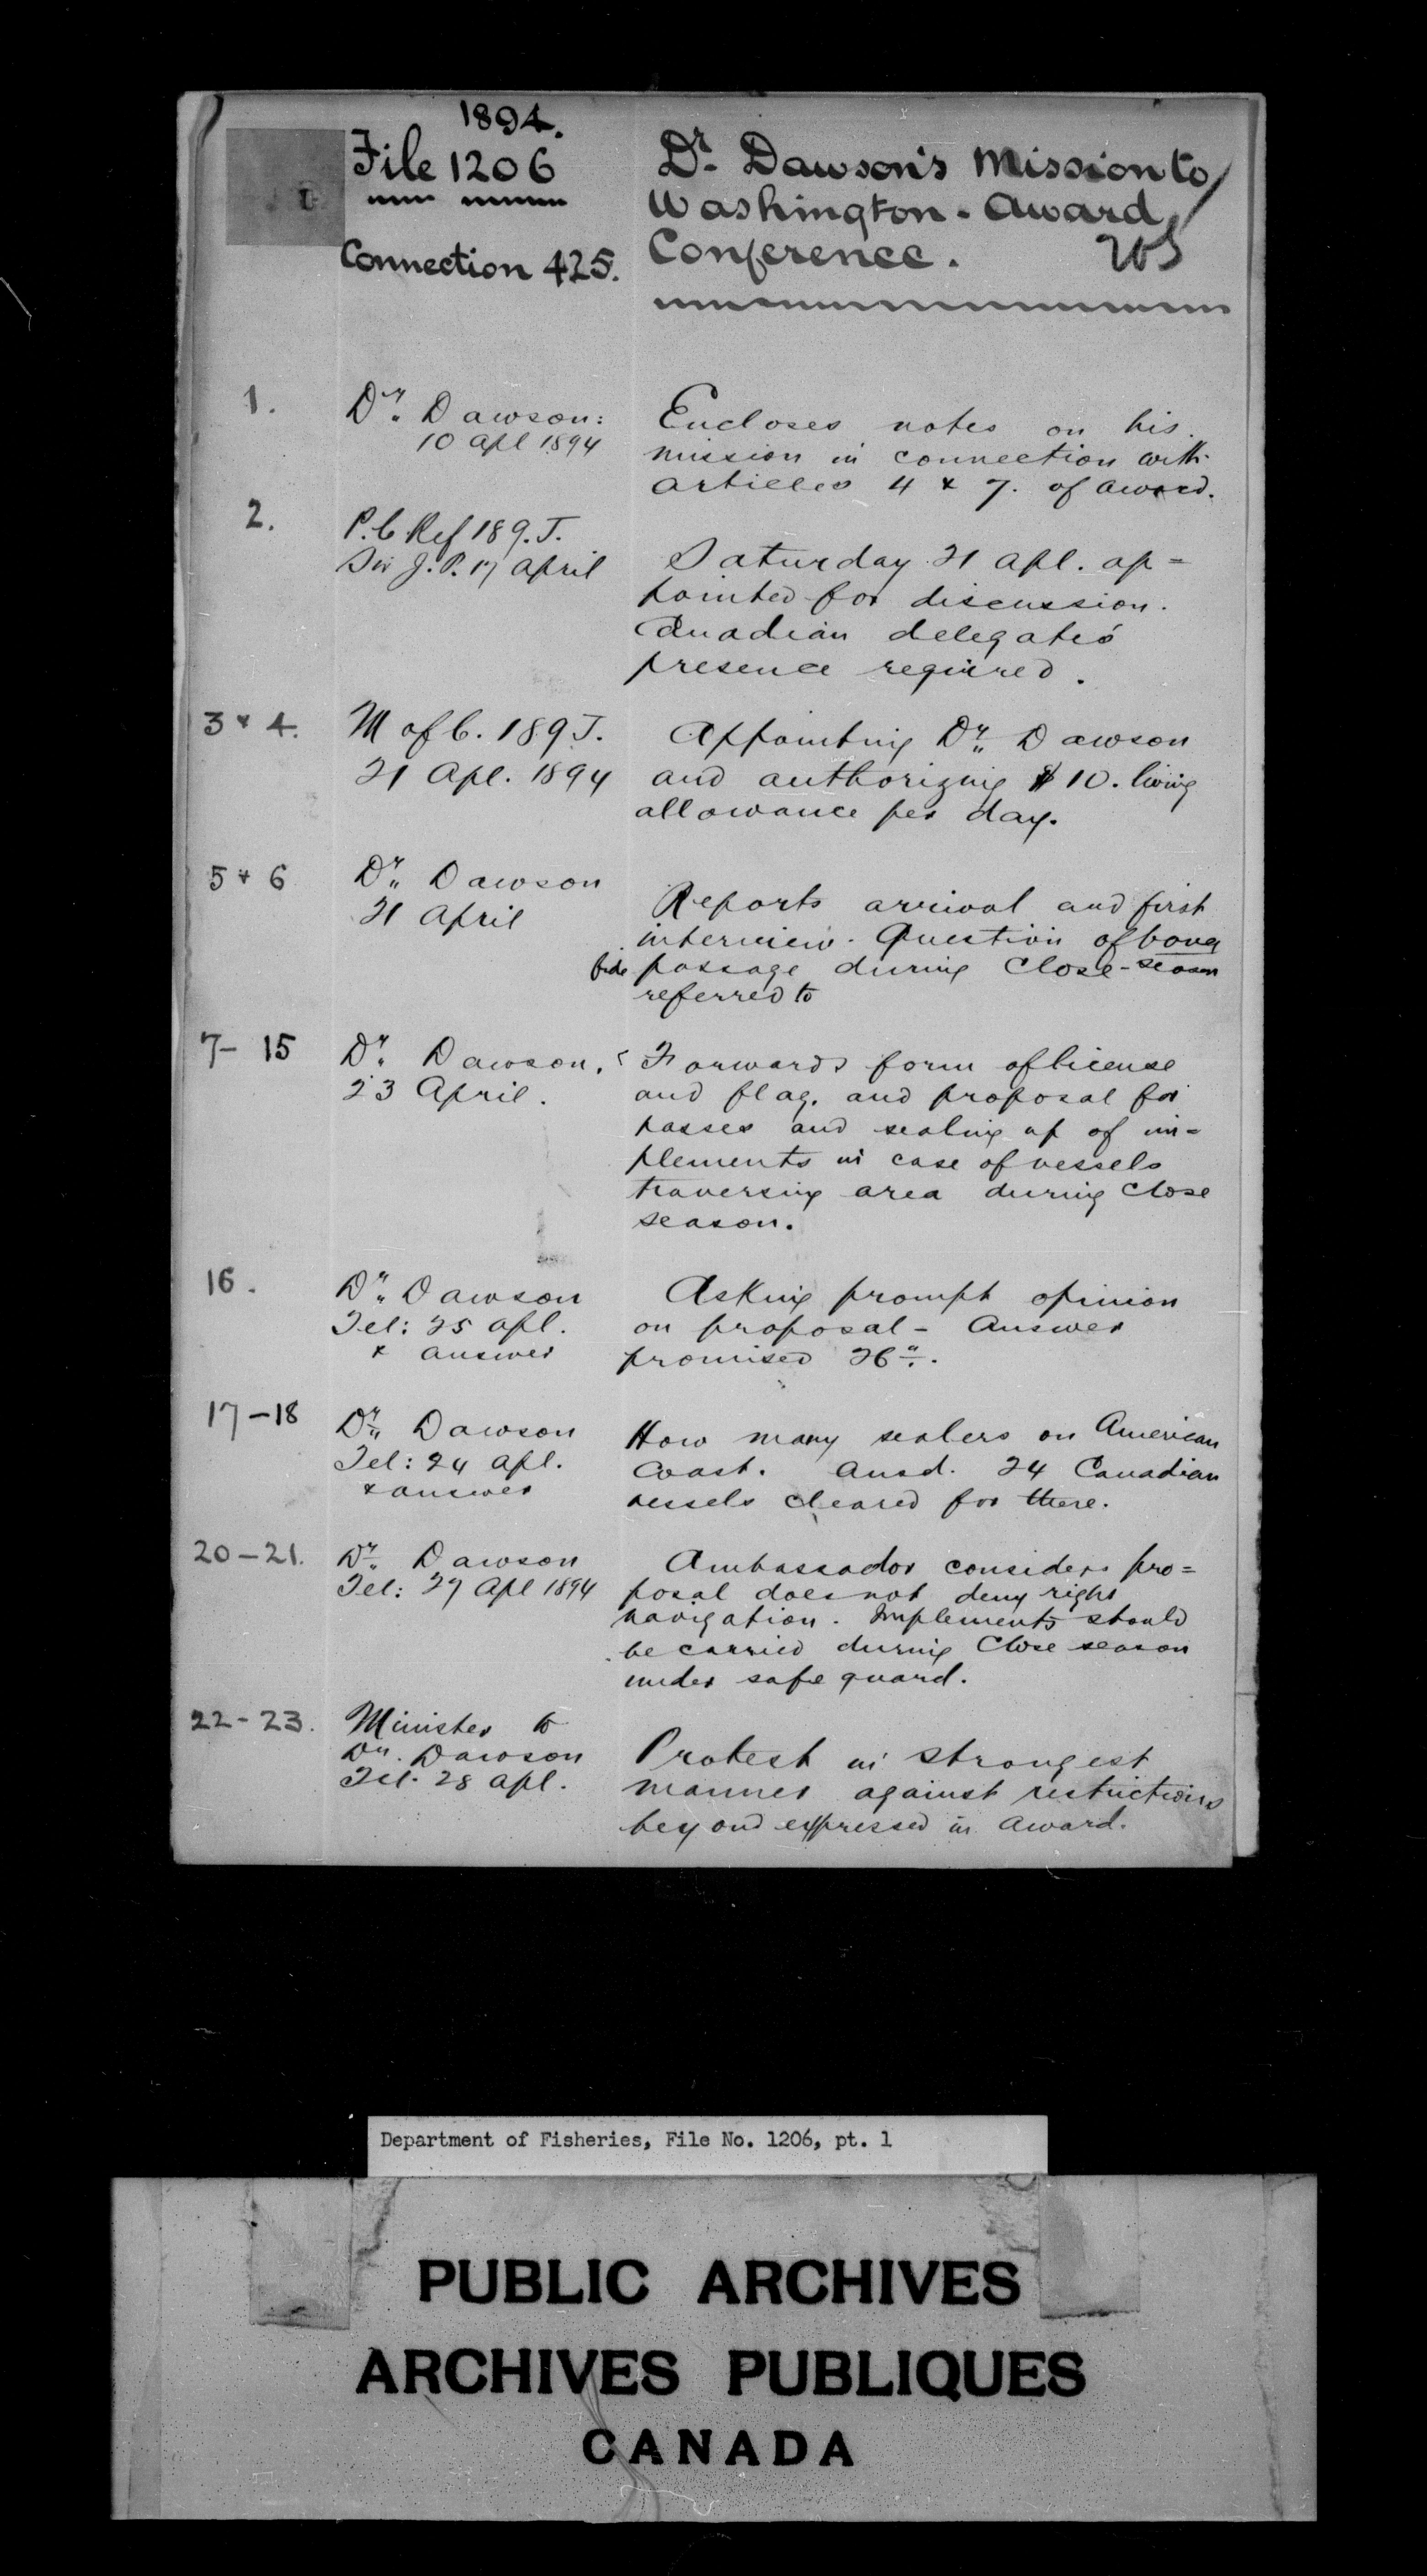 1894.
File 1206
Connection 425.
Dr. Dawson's Mission to
Washington - Award
Conference.
1.
Dr. Dawson:
10 Apl 1894
Encloses notes on his
mission in connection with
articles 4 & 7. of award.
2.
P.C. Ref 189.J.
Sir J.P. 17 April
Saturday 21 Apl. ap=
pointed for discussion.
Canadian delegate's
presence required.
3 & 4.
M of C. 189J.
21 Apl. 1894
Appointing Dr. Dawson
and authorizing $10. living
allowance per day.
5 & 6
Dr. Dawson
21 April
Reports arrival and first
interview. Question of bona
fide passage during close-season
referred to
7-15
Dr. Dawson.
23 April.
Forwards form of license
and flag. and proposal for
passes and sealing up of im=
plements in case of vessels
traversing area during close
season.
16.
Dr. Dawson
Tel: 25 Apl.
& answer
Asking prompt opinion
on proposal - Answer
promised 26".
17-18
Dr. Dawson
Tel: 24 Apl.
& answer
How many sealers on American
Coast. Ansd. 24 Canadian
vessels cleared for there.
20-21.
Dr. Dawson
Tel: 27 Apl 1894
Ambassador considers pro=
posal does not deny right
navigation. Implements should
be carried during Close season
under safe guard.
22-23.
Minister to
Dr. Dawson
Tel. 28 Apl.
Protest in strongest
manner against restrictions
beyond expressed in Award.
Department of Fisheries, File No. 1206, pt. 1
PUBLIC ARCHIVES
ARCHIVES PUBLIQUES
CANADA